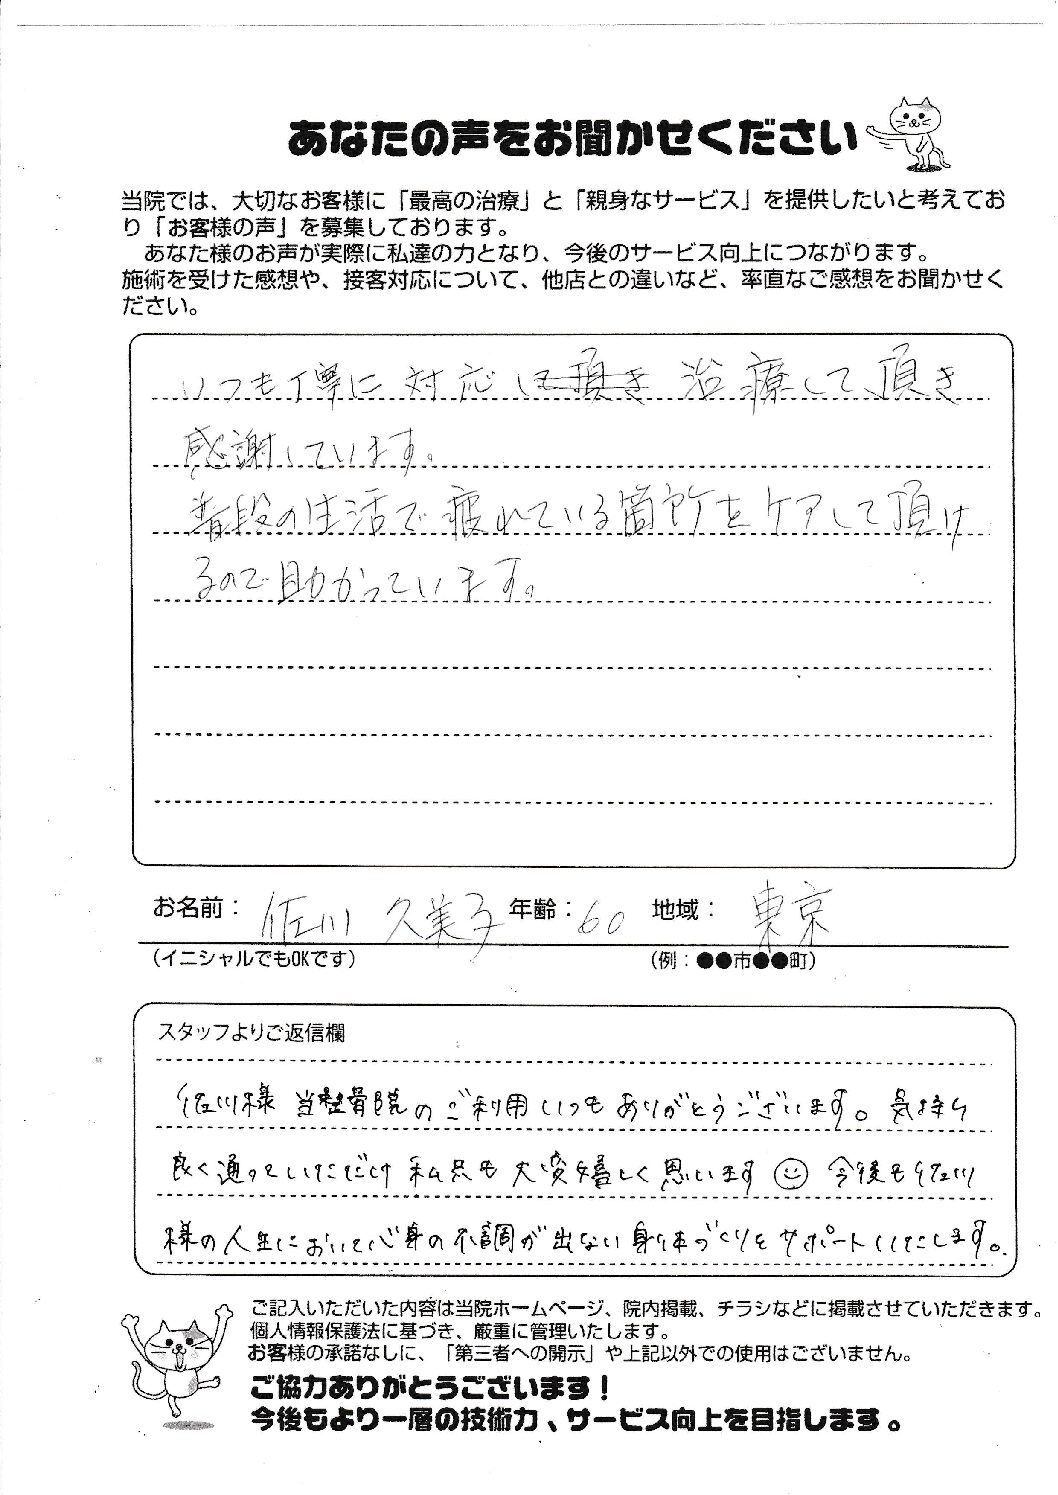 あなたの声をお聞かせください
当院では、大切なお客様に「最高の治療」と「親身なサービス」を提供したいと考えてお
り「お客様の声」を募集しております。
あなた様のお声が実際に私達の力となり、今後のサービス向上につながります。
施術を受けた感想や、接客対応について、他店との違いなど、率直なご感想をお聞かせく
ださい。
いつも丁寧に対応して頂き 治療して頂き
感謝しています。
普段の生活で疲れている箇所をケアして頂け
るので助かっています。
お名前： 佐川 久美子 年齢：60 地域： 東京
（イニシャルでもOKです） （例：●●市●●町）
スタッフよりご返信欄
佐川様 当整骨院のご利用いつもありがとうございます。気持ち
良く通っていただけ私共も大変嬉しく思います 今後も佐川
様の人生において心身の不調が出ない身体づくりをサポートいたします。
ご記入いただいた内容は当院ホームページ、院内掲載、チラシなどに掲載させていただきます。
個人情報保護法に基づき、厳重に管理いたします。
お客様の承諾なしに、「第三者への開示」や上記以外での使用はございません。
ご協力ありがとうございます！
今後もより一層の技術力、サービス向上を目指します。